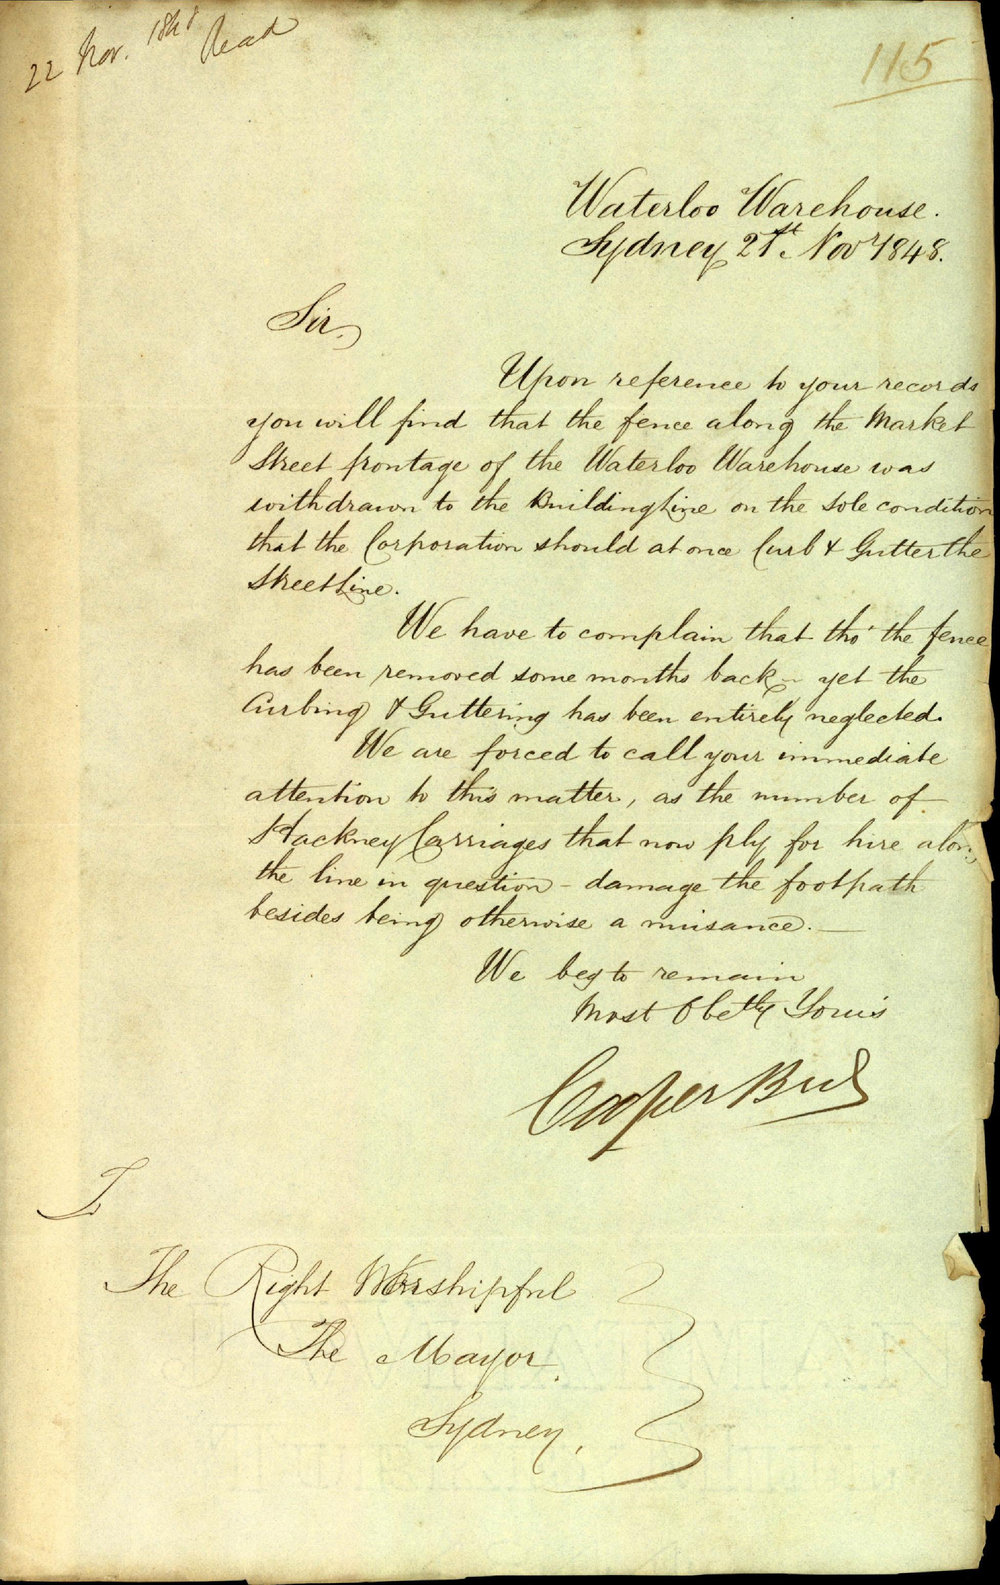 22 Nov. 1848 Read
115
Waterloo Warehouse.
Sydney 21st. Novr 1848.
Sir,
Upon reference to your records
you will find that the fence along the Market
Street frontage of the Waterloo Warehouse was
withdrawn to the Building Line on the sole condition
that the Corporation should at once Curb & Gutter the
Street Line.
We have to complain that tho' the fence
has been removed some months back - yet the
Curbing & Guttering has been entirely neglected.
We are forced to call your immediate
attention to this matter, as the number of
Hackney Carriages that now ply for hire along
the line in question - damage the footpath
besides being otherwise a nuisance. —
We beg to remain
Most Obetly Yours
Cooper Bros
To
The Right Worshipful
The Mayor
Sydney,